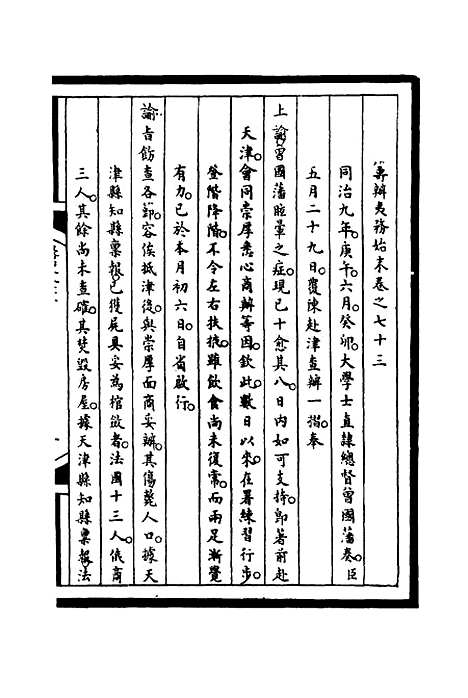 籌辦夷務始末卷之七十三
同治九年。庚午。六月。癸卯。大學士直隸總督曾國藩奏。臣
五月二十九日。覆陳赴津查辦一摺。奉
上諭。曾國藩眩暈之症。現已十愈其八。日內如可支持。卽著前赴
天津。會同崇厚悉心商辦等因。欽此。數日以來。在署練習行步。
登階降階。不令左右扶掖。雖飲食尚未復常。而兩足漸覺
有力。已於本月初六日。自省啟行。
諭旨飭查各節。容俟抵津後。與崇厚面商妥辦。其傷斃人口。據天
津縣知縣稟報。已獲屍具。妥為棺斂者。法國十三人。俄商
三人。其餘尚未查確。其焚毀房屋。據天津縣知縣稟報。法